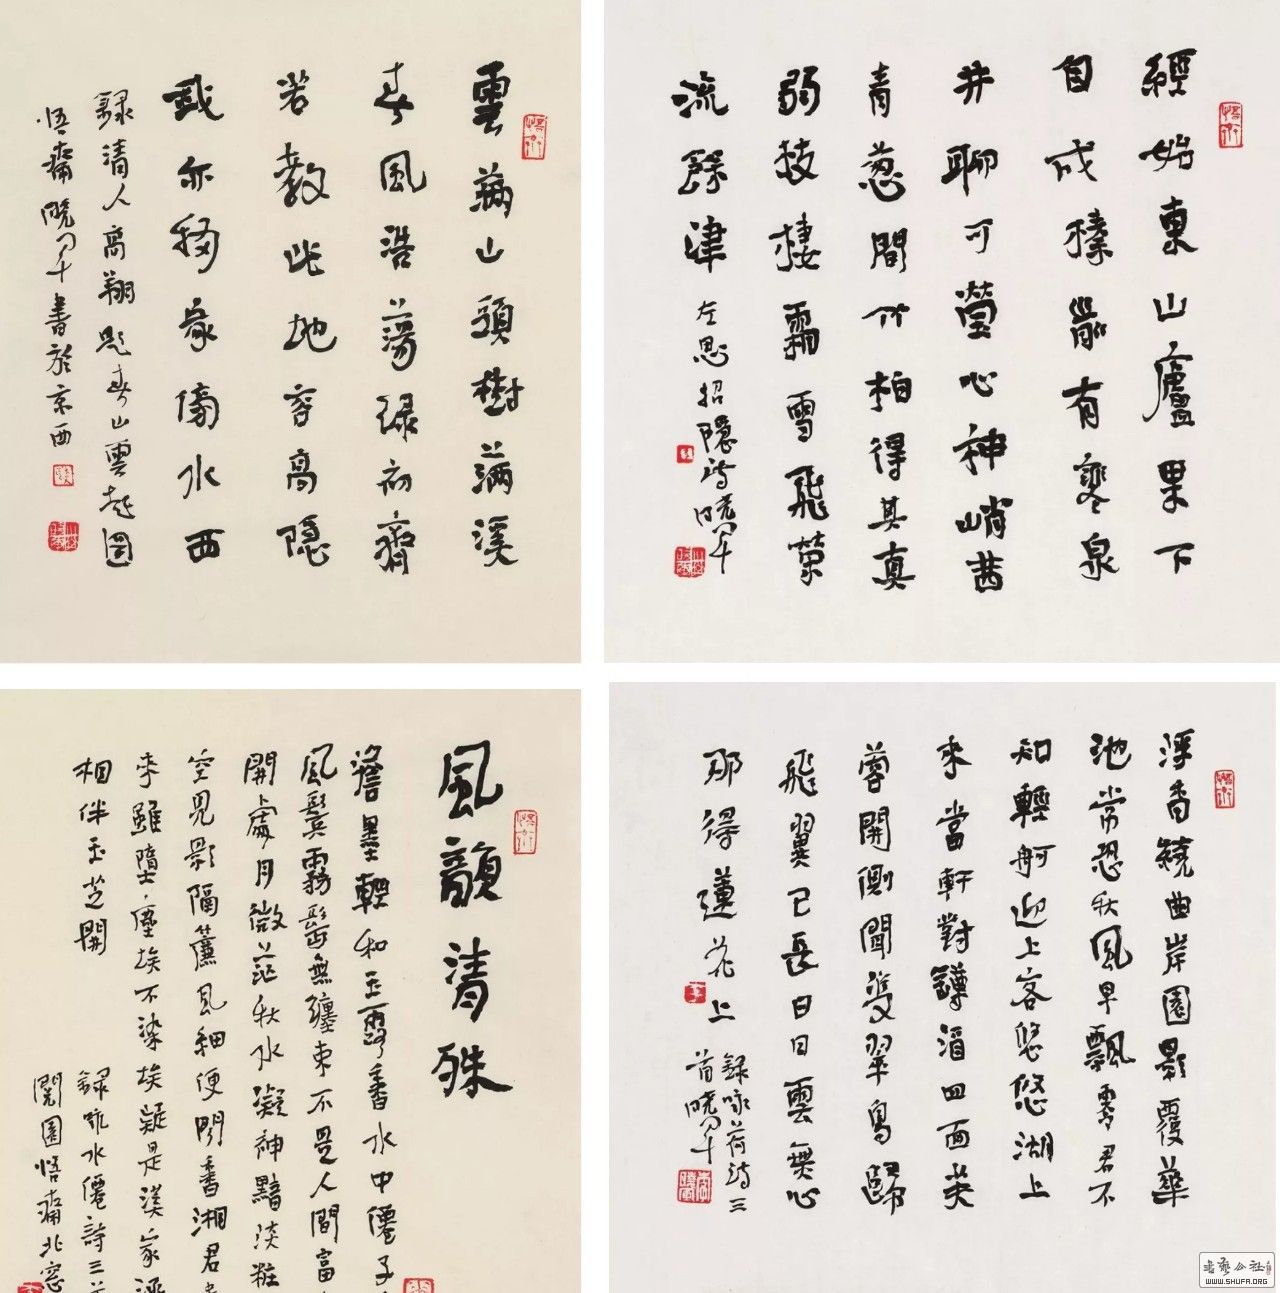 雲滿山頭樹滿溪
春風浩蕩綠初齊
若教此地容高隱
我亦移家傍水西
錄清人高翔題春山雲起圖
悟齋曉軍書於京西
經始東山廬果下
自成榛前有寒泉
井聊可瑩心神峭蒨
青葱間竹柏得其真
弱枝棲霜雪飛榮
流餘津
左思招隱詩曉軍
風韻清殊
澹墨輕和玉露香水中僊子
風鬟霧髻無纏束不是人間富
開處月微茫秋水凝神黯淡粧
空見影隔簾風細便聞香湘君
來雖墮塵埃不染埃疑是漢家
相伴玉芝開
錄詠水僊詩三首
閱園悟齋北窓
浮香繞曲岸圓影覆華
池常恐秋風早飄零君不
知輕舸迎上客悠悠湖上
來當軒對罇酒四面芙
蓉開側聞雙翠鳥歸
飛翼已長日日雲無心
那得蓮花上
錄詠荷詩三
首曉軍
WWW.SHUFA.ORG